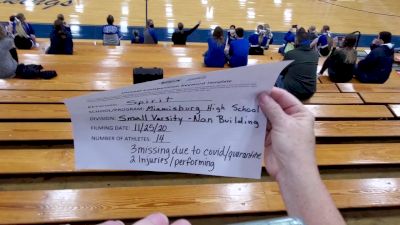 Spirit
SCHOOL/PROGRAM: Miamisburg High School
DIVISION: Small Varsity - Non Building
FILMING DATE: 11/25/20
NUMBER OF ATHLETES: 14
3 missing due to covid/quarantine
2 Injuries/performing